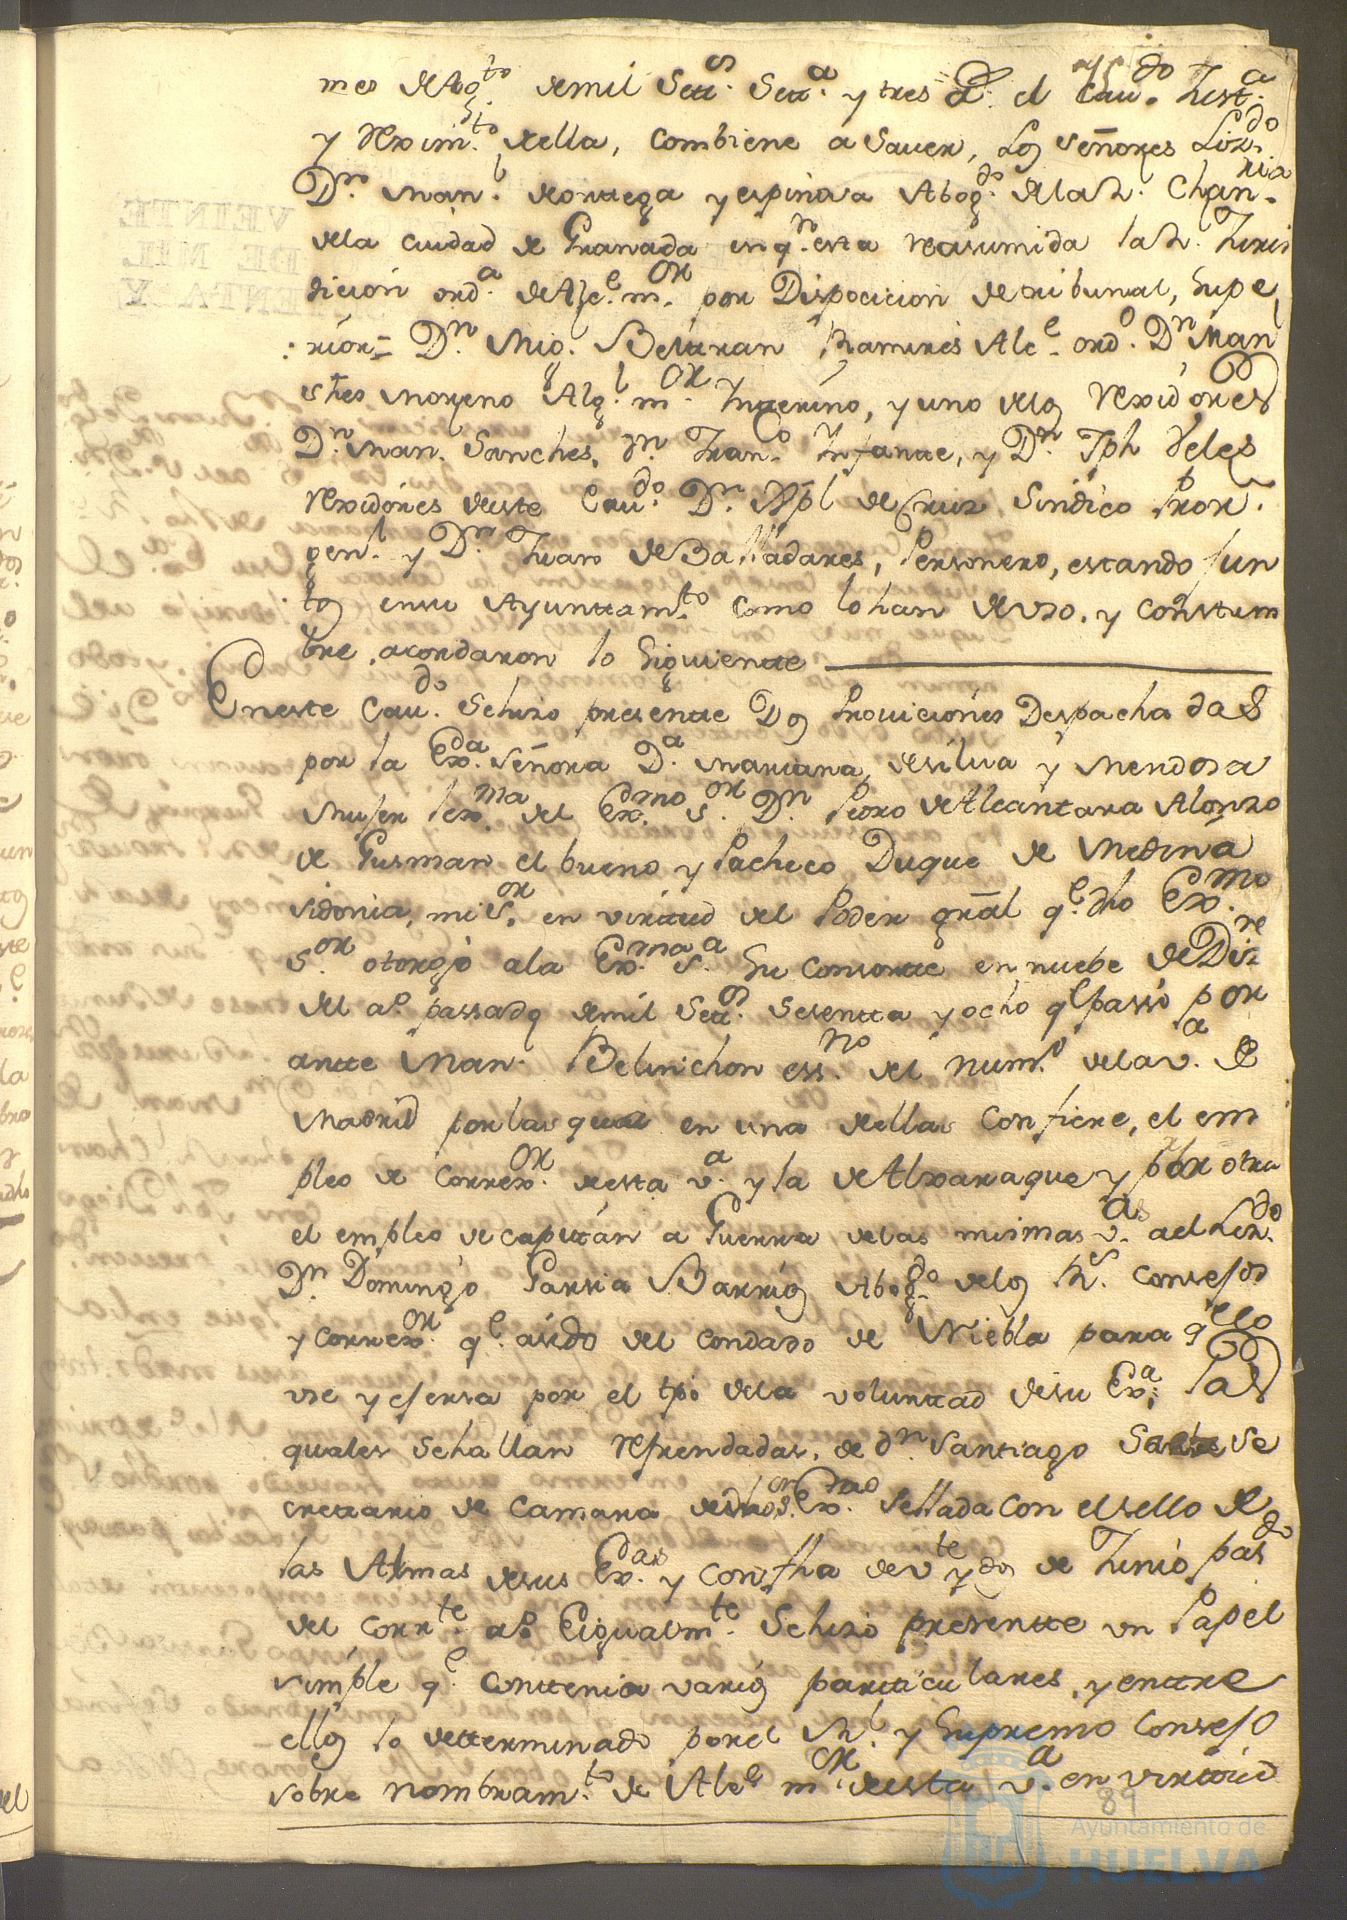 75
mes de Ag.to de mil Sett.s Sett.a y tres a.s el Cau.do Just.a
y Rexim.to della, combiene a Sauer, Los señores Liz.do
D.n Man.l de ortega y espinosa Abog.do de la R. Chan.ria
de la ciudad de Granada en q.n esta reasumida la R. Juris
dicion ord.a de Alc.e m.or por Disposicion de tribunal, supe
rior= D.n Mig.l Beltran Ramires Alc.e ord.o D.n Man
Moreno Alg.l m.or Ynterino, y uno de los Rexidores
D.n Man. Sanches, D.n Fran.co Ynfante, y D.n Jph Veles
Rexidores deste Cau.do D.n Xpl de Cruz Sindico Pror.
gen.l y D.n Juan de Balladares, Personero, estando Jun
tos en su Ayuntam.to como lo han de uso, y costum
bre, acordaron lo siguiente
En este Cau.do se hizo presente Dos Prouiciones Despachadas
por la Ex.da señora D.a Mariana de silua y Mendosa
Mujer lex.ma del Ex.mo S.or D.n Pedro de Alcantara Alonzo
de Gusman el bueno y Pacheco Duque de Medina
sidonia, mi S.or en virtud del Poder gral q.e dho Ex.mo
S.or otorgó a la Ex.ma S.a su consorte en nuebe de Diz.re
del a.o passado de mil Sett.s sesentta y ocho q.e passó por
ante Man.l Belinchon ess.no del num.o de la v.a de
Madrid por las que en una dellas confiere, el em
pleo de Correx.or desta v.a y la de Alxaraque y por otra
el empleo de capitan a Guerra de las mismas v.as a el Liz.do
D.n Domingo Garsia Barrios Abog.do de los R.s consejos
y correx.or q.e a sido del condado de Niebla para q.e lo
use y ejersa por el tpo de la voluntad de su Ex.a; las
quales se hallan refrendadas, de d.n Santiago Se
crettario de camara de dhos S.or Ex.mo sellada con el sello de
las Armas de sus Ex.as y con fha de v.te y dos de Junio pas.do
del corr.te a.o E igualm.te se hizo presentte un Papel
simple q.e conttenia varios partticulares, y enttre
ellos lo detterminado por el R.l y Supremo Consejo
sobre nombram.to de Alc.e m.or desta v.a en virtud
89
Ayuntamiento de
HUELVA